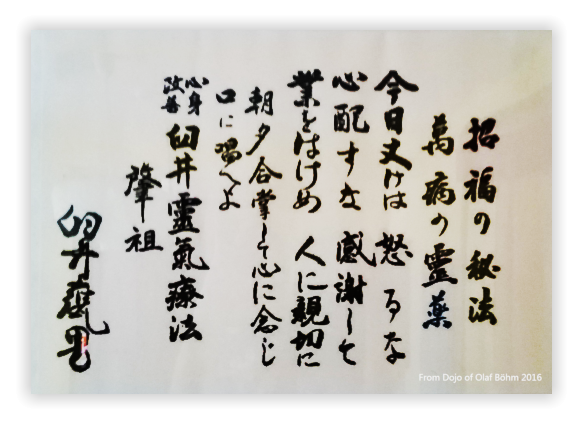 招福の秘法
萬病の霊薬
今日丈けは 怒るな
心配すな 感謝して
業をはけめ 人に親切に
朝夕合掌して心に念じ
口に唱へよ
心身改善 臼井靈氣療法
肇祖
臼井甕男
From Dojo of Olaf Böhm 2016